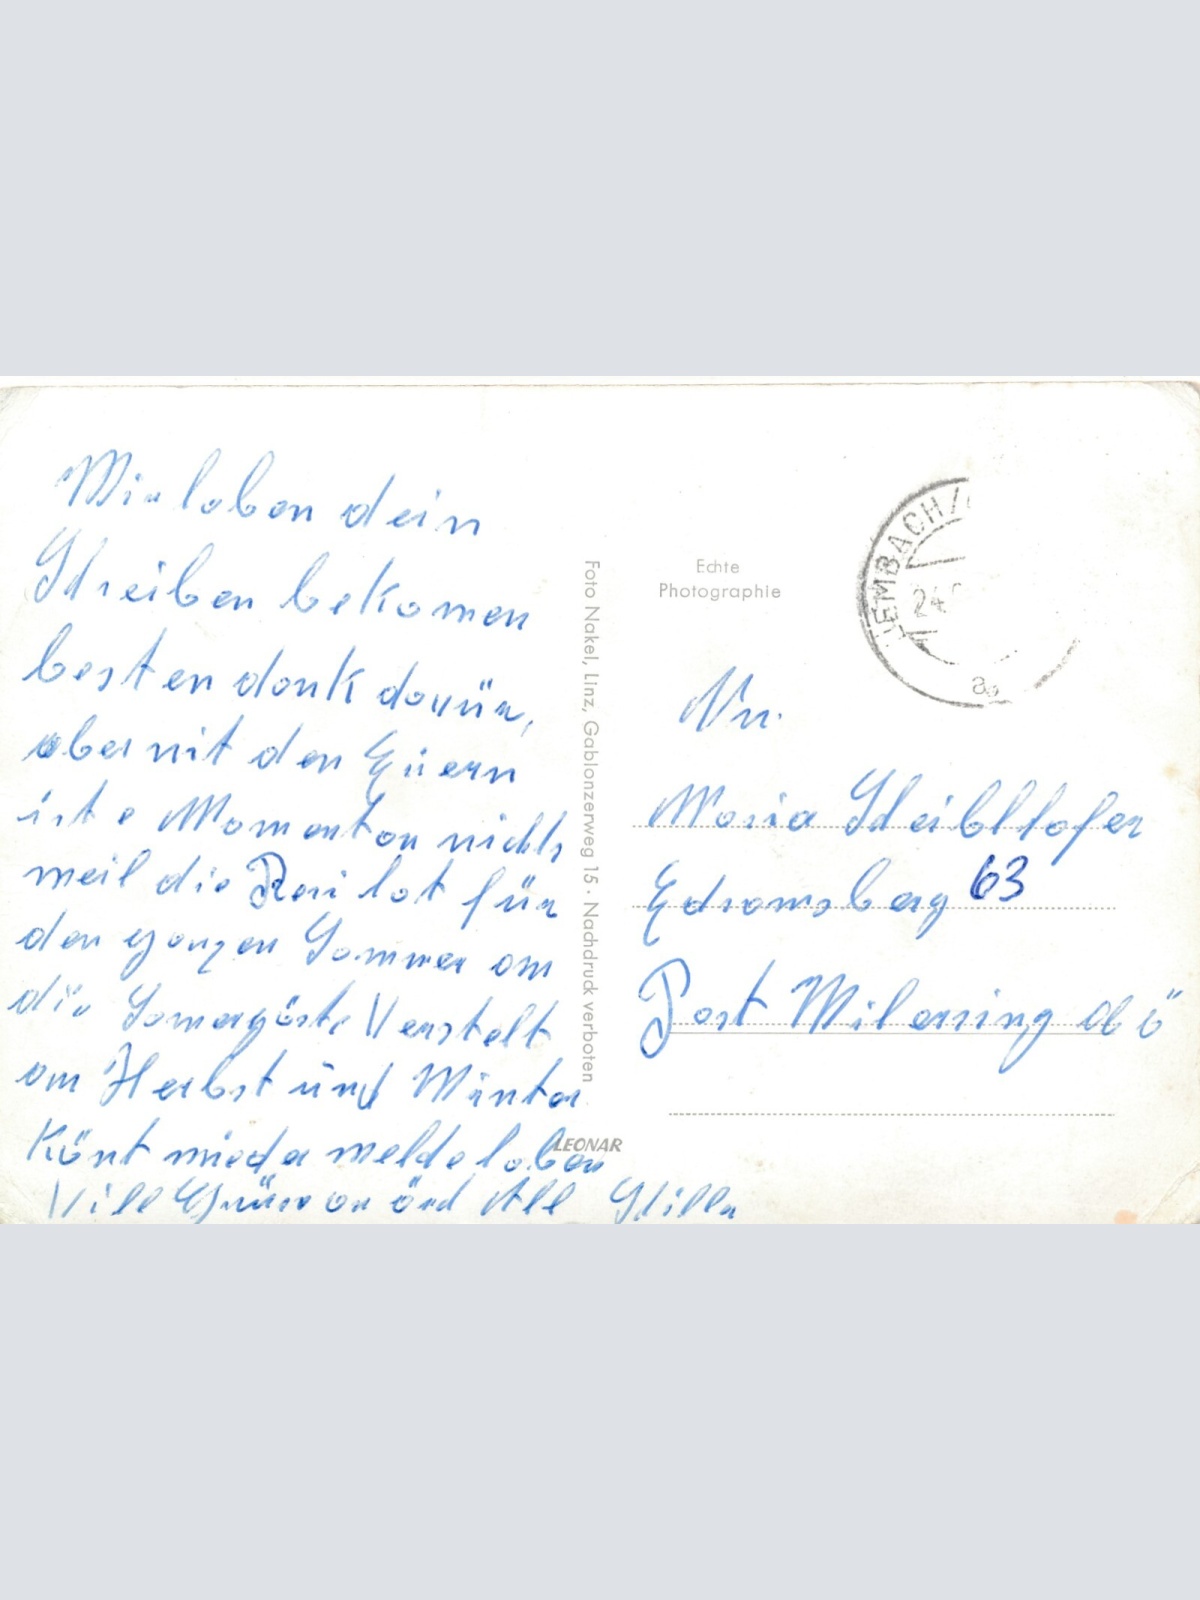 Wir haben dein
Schreiben bekomen
besten dank davür,
aber mit den
ist Momenton nichts
weil die hot für
den ganzen Sommer am
die Somergäste Verstelt
am Herbst und Winter
Könt wieda melde haben
Vill on All
Foto Nakel, Linz, Gablonzerweg 15 · Nachdruck verboten
LEONAR
Echte
Photographie
LEMBACH/
24.
a
Maria Scheiblhofer
63
Post